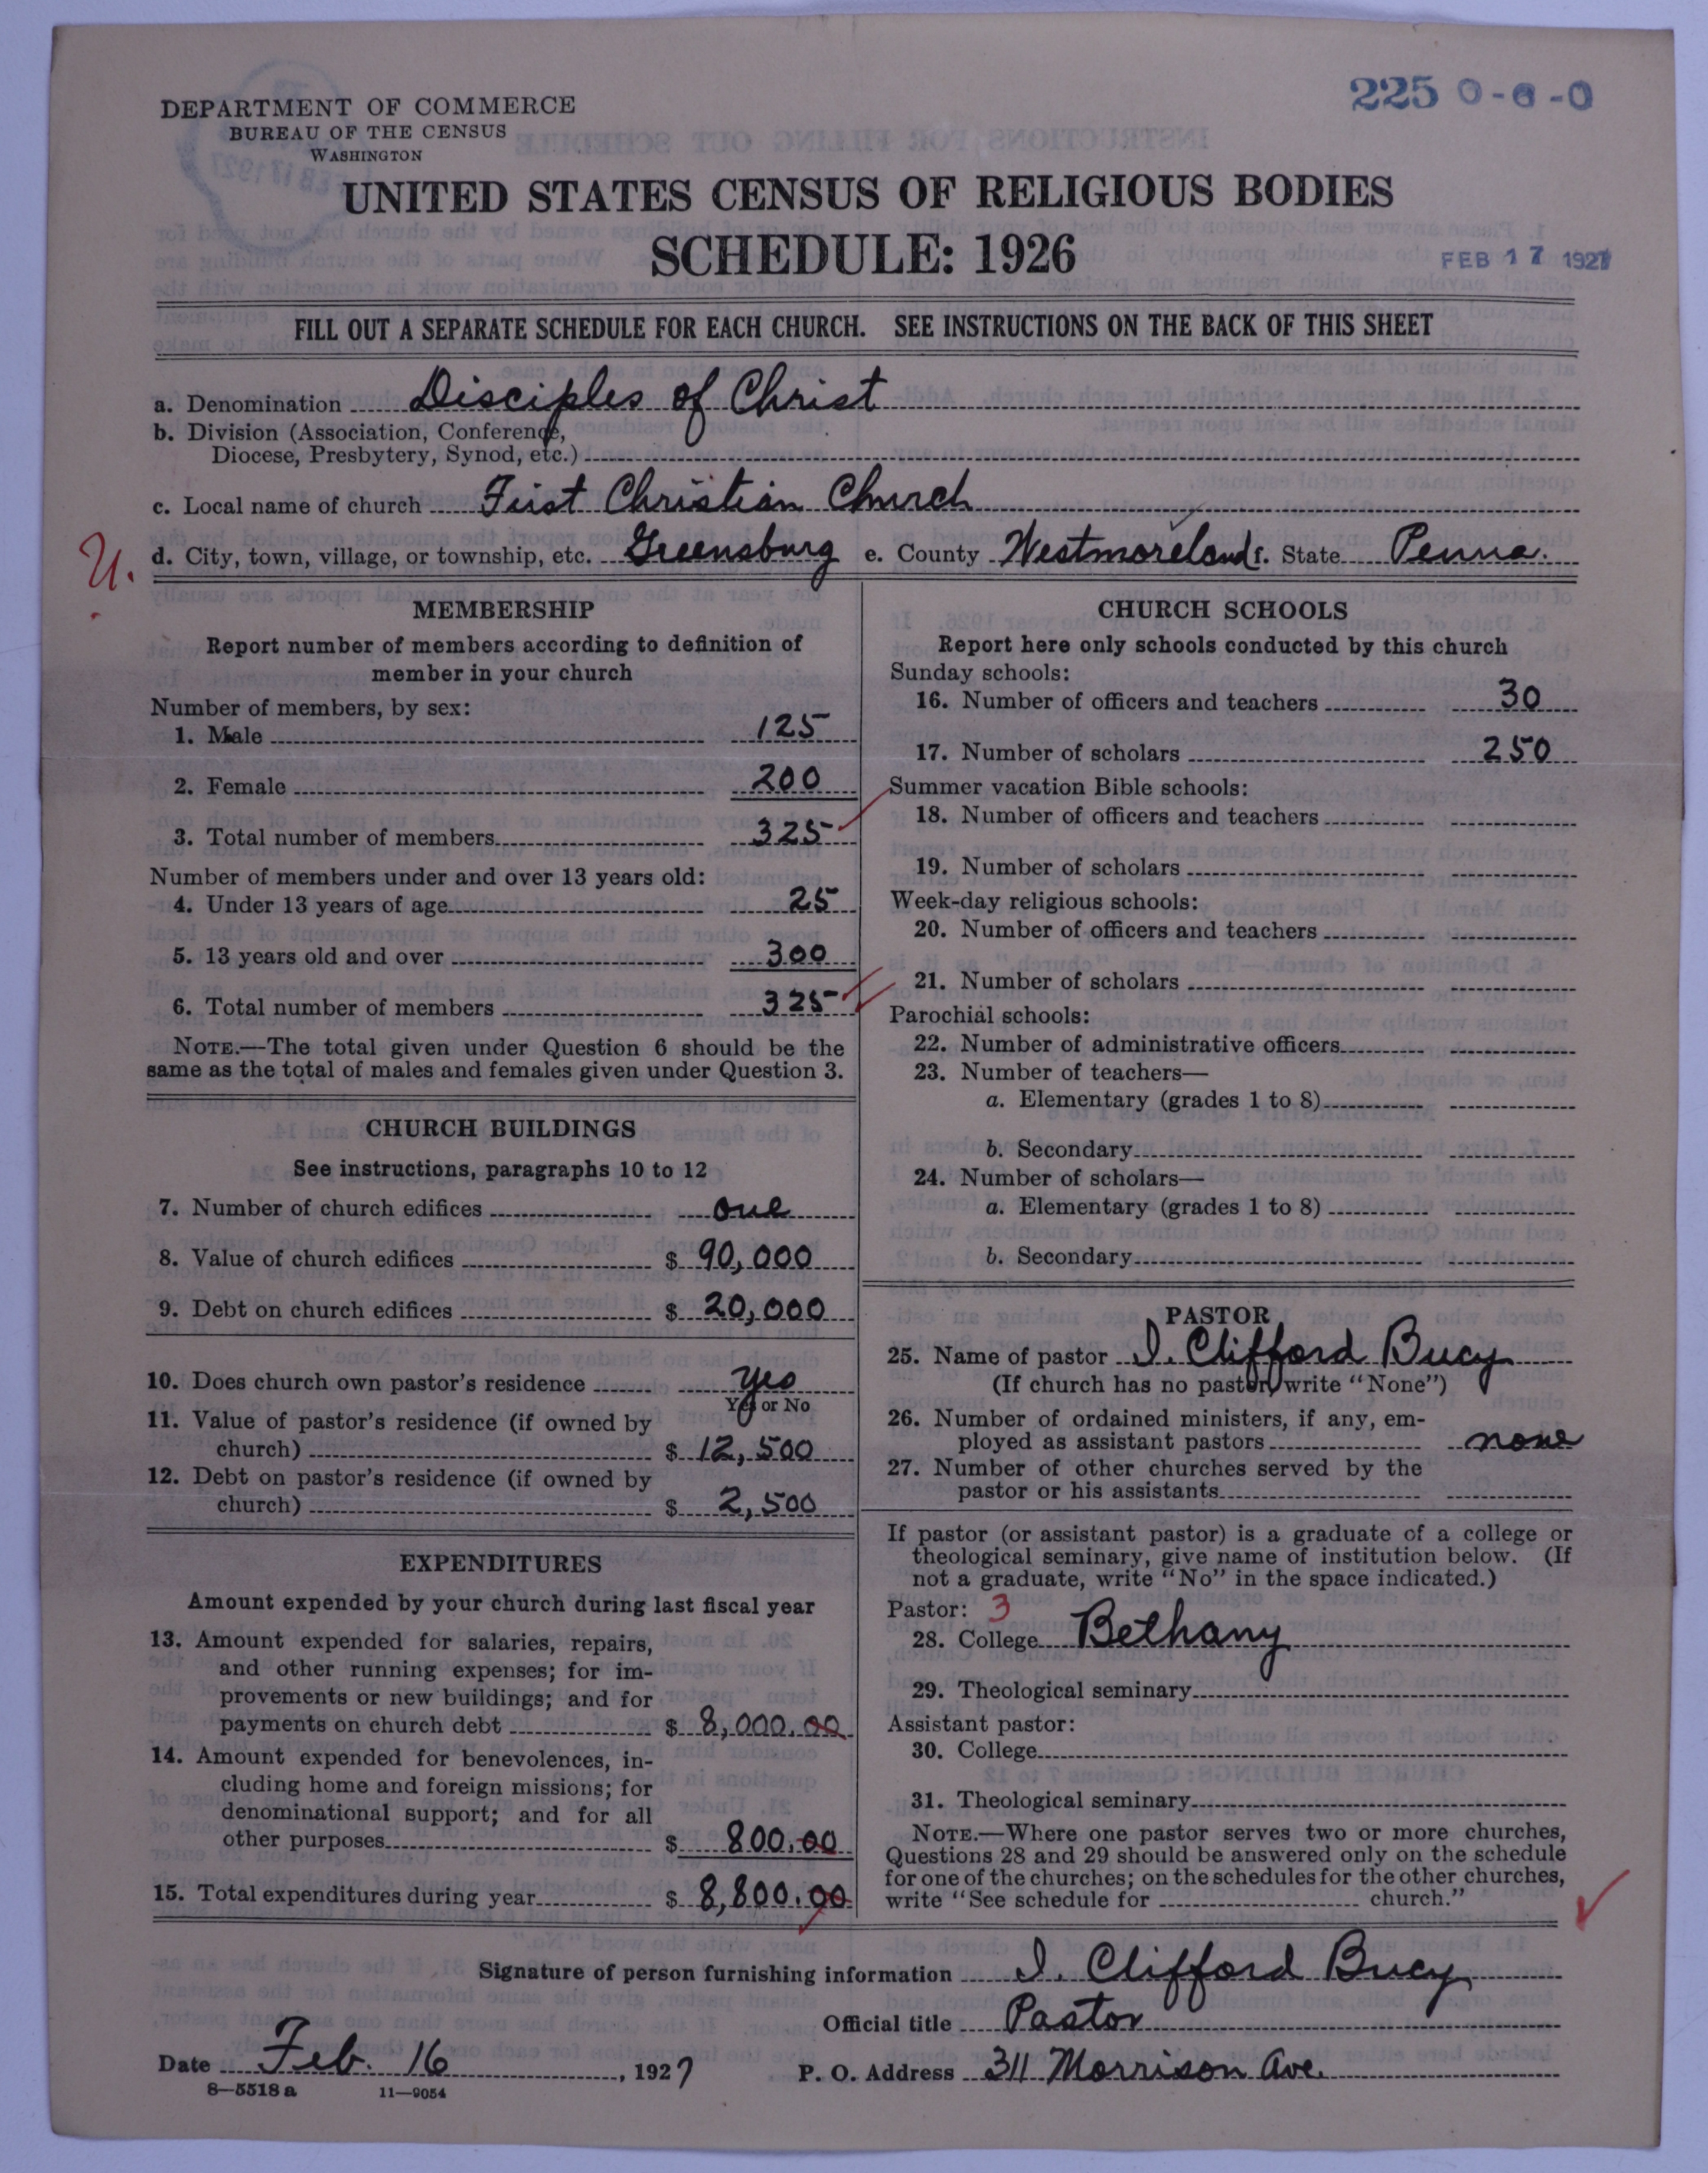 225 0-6-0
DEPARTMENT OF COMMERCE
BUREAU OF THE CENSUS
WASHINGTON
UNITED STATES CENSUS OF RELIGIOUS BODIES
SCHEDULE: 1926
FEB 17 1927
FILL OUT A SEPARATE SCHEDULE FOR EACH CHURCH. SEE INSTRUCTIONS ON THE BACK OF THIS SHEET
a. Denomination Disciples of Christ
b. Division (Association, Conference,
Diocese, Presbytery, Synod, etc.)
c. Local name of church First Christian Church
U.
d. City, town, village, or township, etc. Greensburg e. County Westmoreland f. State Penna.
MEMBERSHIP
Report number of members according to definition of
member in your church
Number of members, by sex:
1. Male 125
2. Female 200
3. Total number of members 325
Number of members under and over 13 years old:
4. Under 13 years of age 25
5. 13 years old and over 300
6. Total number of members 325
NOTE.—The total given under Question 6 should be the
same as the total of males and females given under Question 3.
CHURCH BUILDINGS
See instructions, paragraphs 10 to 12
7. Number of church edifices one
8. Value of church edifices $ 90,000
9. Debt on church edifices $ 20,000
10. Does church own pastor's residence yes
Yes or No
11. Value of pastor's residence (if owned by
church) $ 12,500
12. Debt on pastor's residence (if owned by
church) $ 2,500
EXPENDITURES
Amount expended by your church during last fiscal year
13. Amount expended for salaries, repairs,
and other running expenses; for im-
provements or new buildings; and for
payments on church debt $ 8,000.00
14. Amount expended for benevolences, in-
cluding home and foreign missions; for
denominational support; and for all
other purposes $ 800.00
15. Total expenditures during year $ 8,800.00
CHURCH SCHOOLS
Report here only schools conducted by this church
Sunday schools:
16. Number of officers and teachers 30
17. Number of scholars 250
Summer vacation Bible schools:
18. Number of officers and teachers
19. Number of scholars
Week-day religious schools:
20. Number of officers and teachers
21. Number of scholars
Parochial schools:
22. Number of administrative officers
23. Number of teachers—
a. Elementary (grades 1 to 8)
b. Secondary
24. Number of scholars—
a. Elementary (grades 1 to 8)
b. Secondary
PASTOR
25. Name of pastor I. Clifford Bucy
(If church has no pastor, write "None")
26. Number of ordained ministers, if any, em-
ployed as assistant pastors none
27. Number of other churches served by the
pastor or his assistants
If pastor (or assistant pastor) is a graduate of a college or
theological seminary, give name of institution below. (If
not a graduate, write "No" in the space indicated.)
Pastor: 3
28. College Bethany
29. Theological seminary
Assistant pastor:
30. College
31. Theological seminary
NOTE.—Where one pastor serves two or more churches,
Questions 28 and 29 should be answered only on the schedule
for one of the churches; on the schedules for the other churches,
write "See schedule for church."
Signature of person furnishing information I. Clifford Bucy
Official title Pastor
Date Feb. 16, 1927 P. O. Address 311 Morrison Ave.
8—5518 a 11—9054